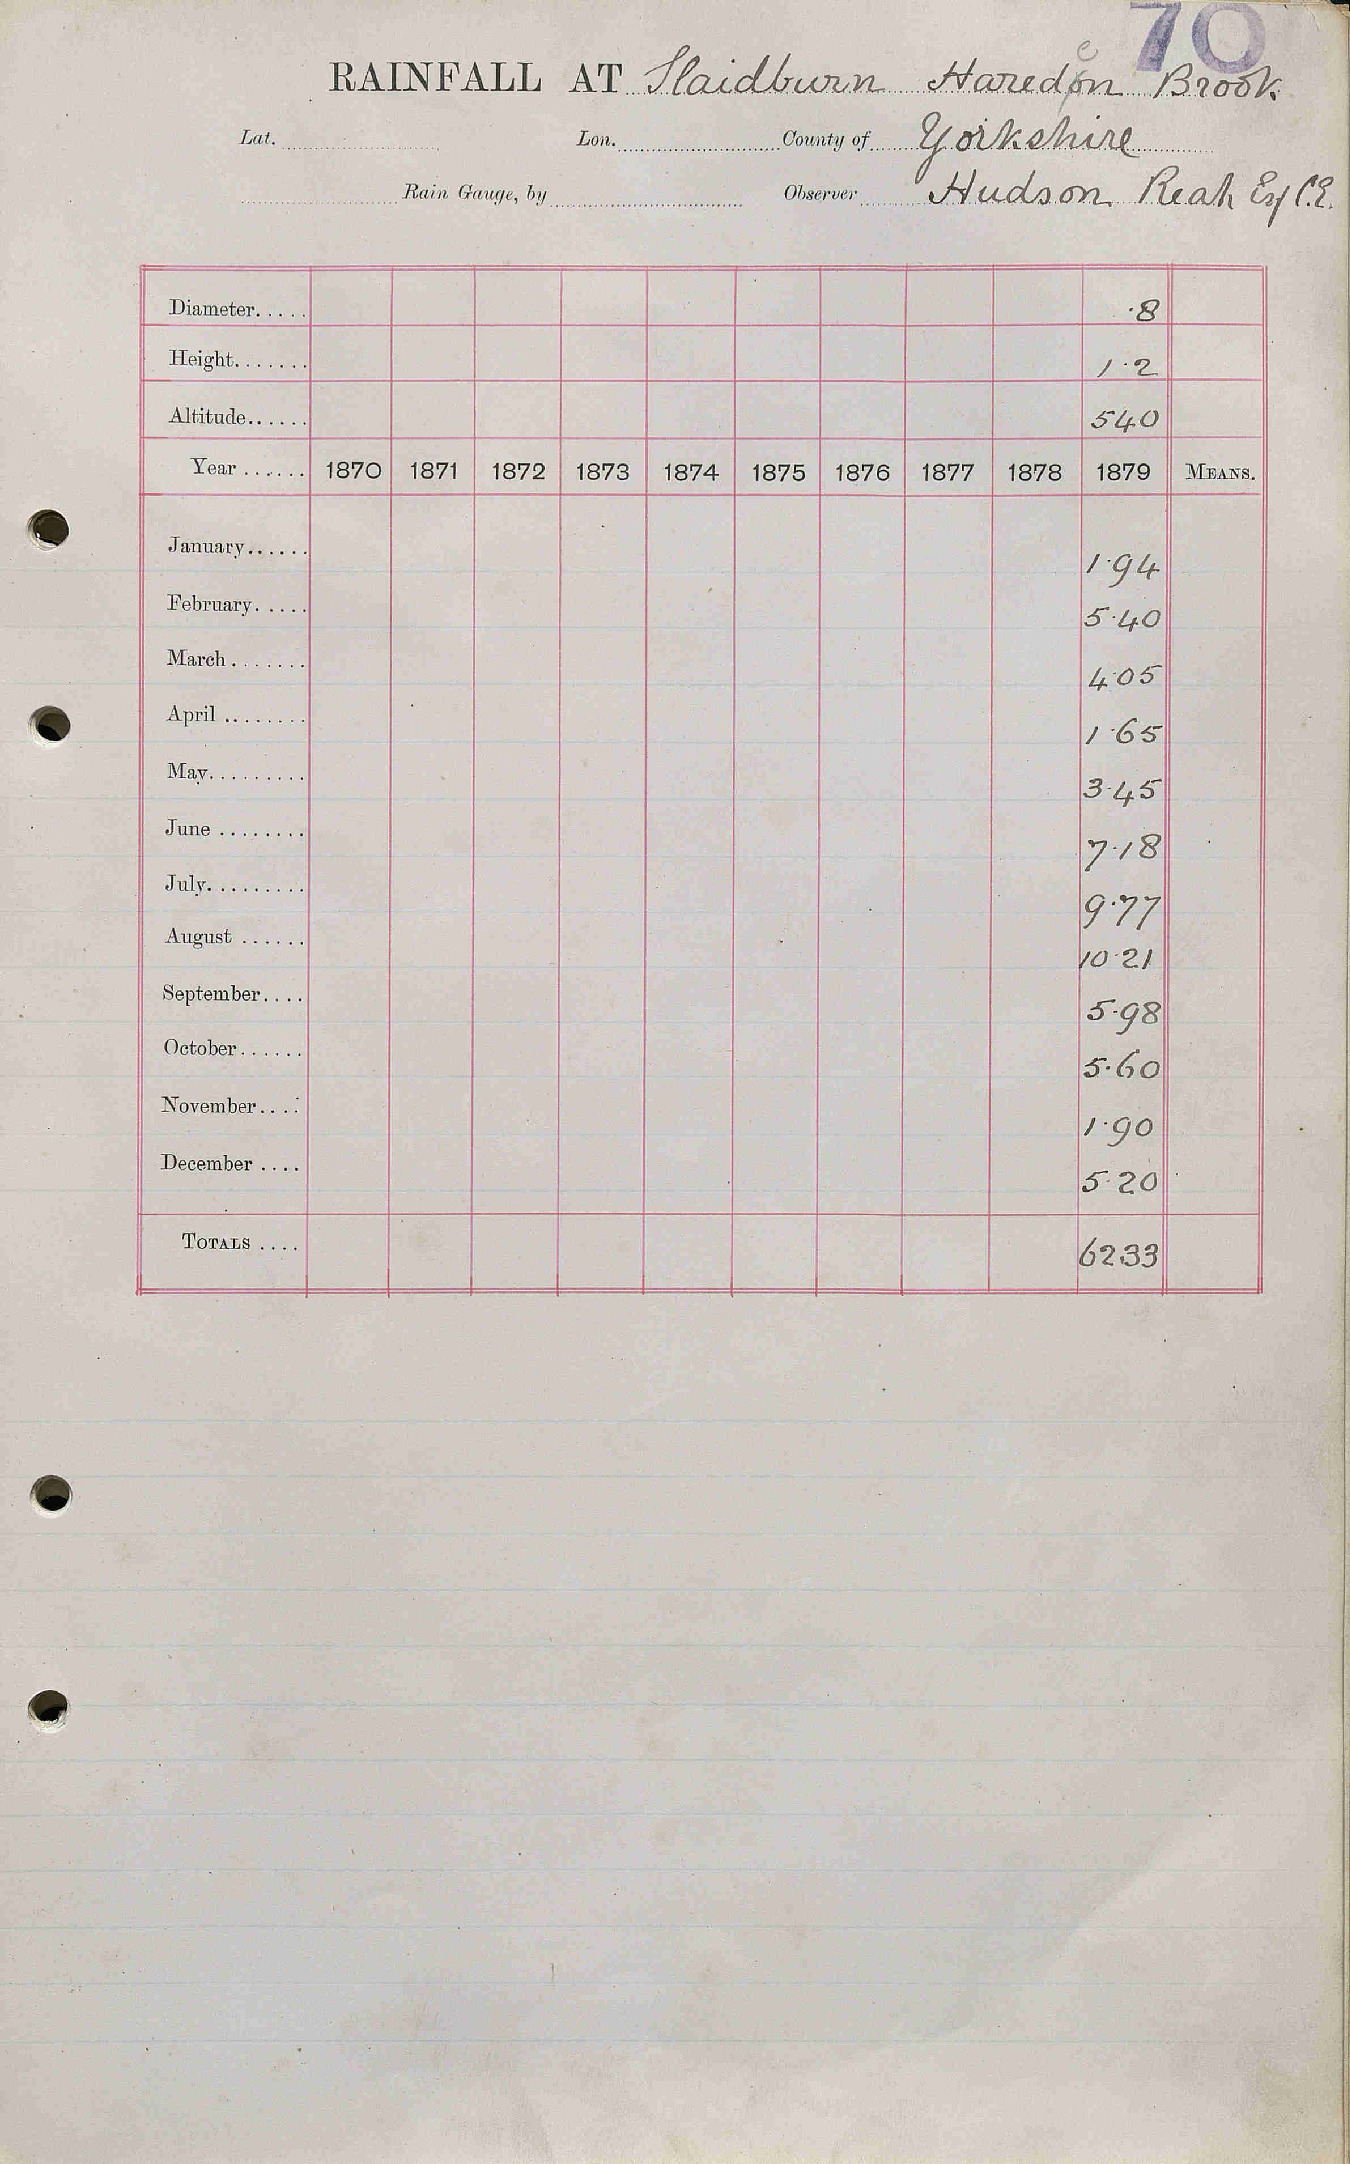 70
RAINFALL AT Slaidburn Haredon Brook
e
Lat. Lon. County of Yorkshire
Rain Gauge, by Observer Hudson Reah Esq C.E.
Diameter..... ·8
Height....... 1·2
Altitude...... 540
Year ...... 1870 1871 1872 1873 1874 1875 1876 1877 1878 1879 MEANS.
January...... 1·94
February..... 5·40
March....... 4·05
April ........ 1·65
May......... 3·45
June ........ 7·18
July......... 9·77
August ...... 10·21
September.... 5·98
October...... 5·60
November.... 1·90
December .... 5·20
TOTALS .... 6233